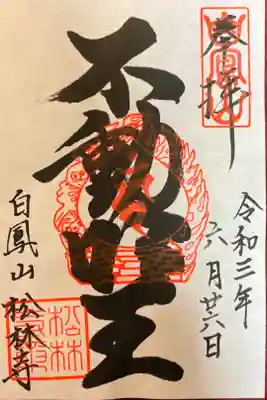 奉拝
令和三年
六月廿六日
不動明王
白鳳山松林寺
松林